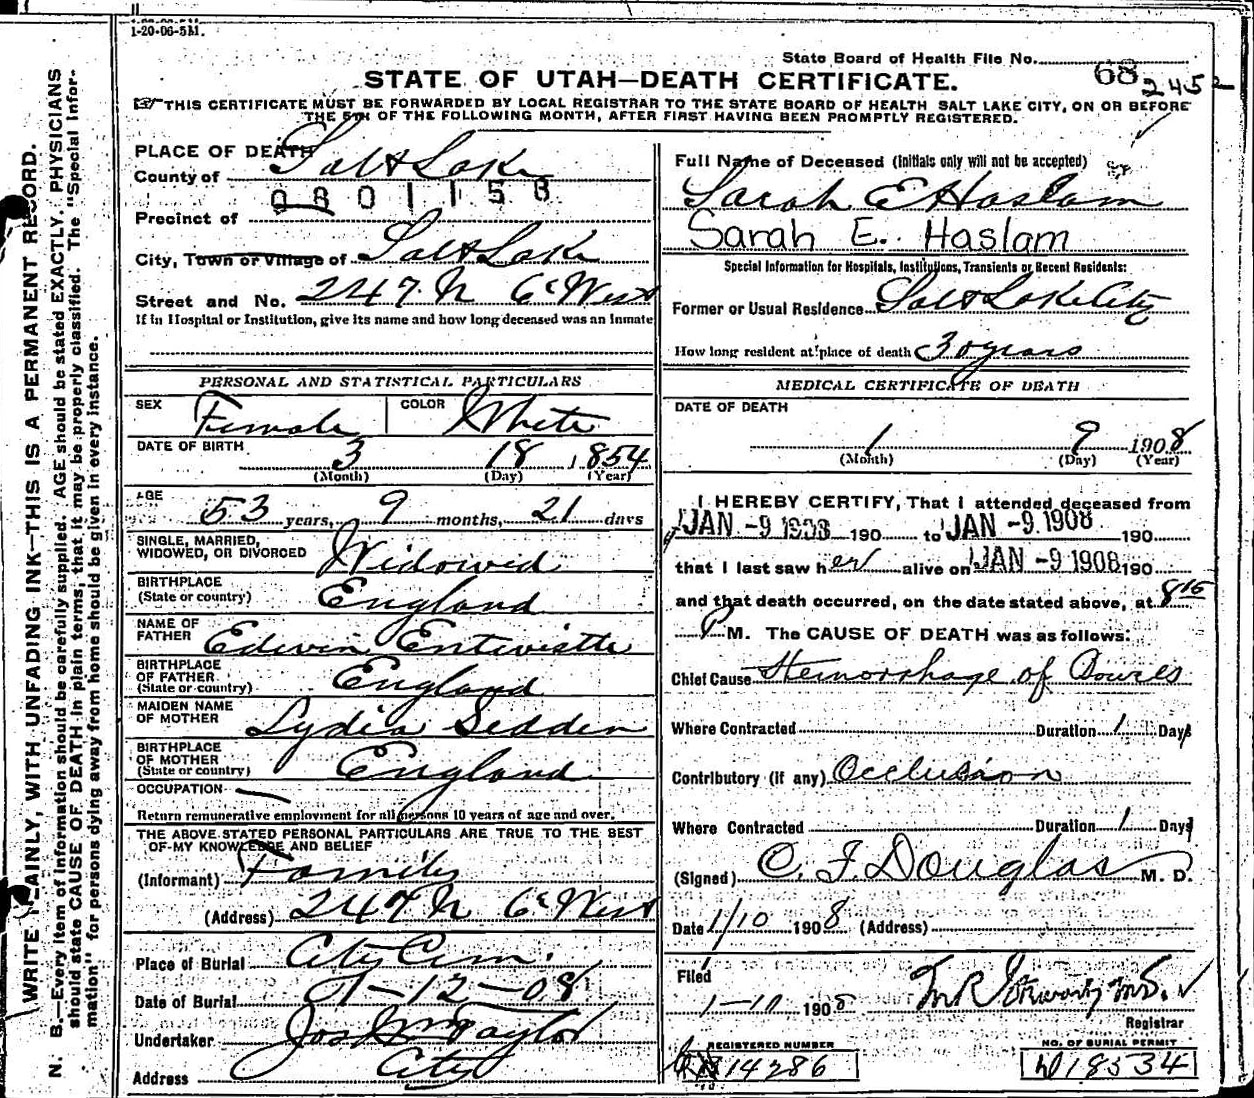 1-20-06-5M.
State Board of Health File No. 68 2452
STATE OF UTAH—DEATH CERTIFICATE.
THIS CERTIFICATE MUST BE FORWARDED BY LOCAL REGISTRAR TO THE STATE BOARD OF HEALTH SALT LAKE CITY, ON OR BEFORE
THE 5TH OF THE FOLLOWING MONTH, AFTER FIRST HAVING BEEN PROMPTLY REGISTERED.
PLACE OF DEATH
County of Salt Lake
0801158
Precinct of
City, Town or Village of Salt Lake
Street and No. 247 N 6th West
If in Hospital or Institution, give its name and how long deceased was an inmate
PERSONAL AND STATISTICAL PARTICULARS
SEX Female COLOR White
DATE OF BIRTH 3 18 1854
(Month) (Day) (Year)
AGE 53 years, 9 months, 21 days
SINGLE, MARRIED,
WIDOWED, OR DIVORCED Widowid
BIRTHPLACE
(State or country) England
NAME OF
FATHER Edwin Entwistle
BIRTHPLACE
OF FATHER
(State or country) England
MAIDEN NAME
OF MOTHER Lydia Sedden
BIRTHPLACE
OF MOTHER
(State or country) England
OCCUPATION —
Return remunerative employment for all persons 10 years of age and over.
THE ABOVE STATED PERSONAL PARTICULARS ARE TRUE TO THE BEST
OF MY KNOWLEDGE AND BELIEF
(Informant) Family
(Address) 247 N 6th West
Place of Burial City Cem.
Date of Burial 1-12-08
Undertaker Jos Wm Taylor
Address City
Full Name of Deceased (Initials only will not be accepted)
Sarah E Haslam
Sarah E. Haslam
Special Information for Hospitals, Institutions, Transients or Recent Residents:
Former or Usual Residence Salt Lake City
How long resident at place of death 30 years
MEDICAL CERTIFICATE OF DEATH
DATE OF DEATH
1 9 1908
(Month) (Day) (Year)
I HEREBY CERTIFY, That I attended deceased from
JAN -9 1908 190 to JAN -9 1908 190
that I last saw her alive on JAN -9 1908 190
and that death occurred, on the date stated above, at 8 15
P M. The CAUSE OF DEATH was as follows:
Chief Cause Hemorrhage of Bowels
Where Contracted Duration 1 Days
Contributory (if any) Occlusion
Where Contracted Duration 1 Days
(Signed) C. F. Douglas M. D.
Date 1/10 1908 (Address)
Filed
1-10 1908
Registrar
REGISTERED NUMBER
14286
NO. OF BURIAL PERMIT
D18534
WRITE PLAINLY, WITH UNFADING INK—THIS IS A PERMANENT RECORD.
N. B.—Every item of information should be carefully supplied. AGE should be stated EXACTLY. PHYSICIANS
should state CAUSE OF DEATH in plain terms, that it may be properly classified. The "Special Infor-
mation" for persons dying away from home should be given in every instance.